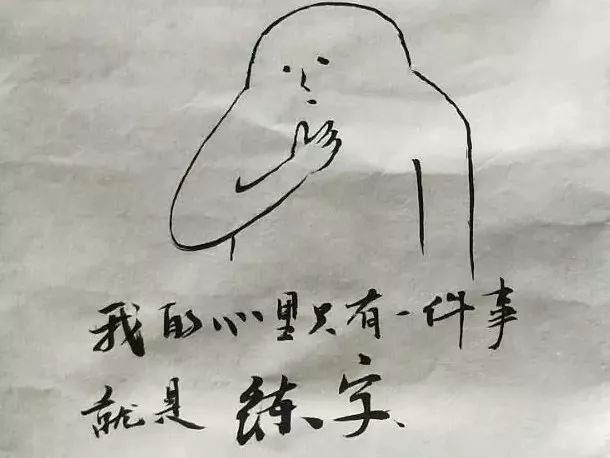 我的心里只有一件事
就是练字